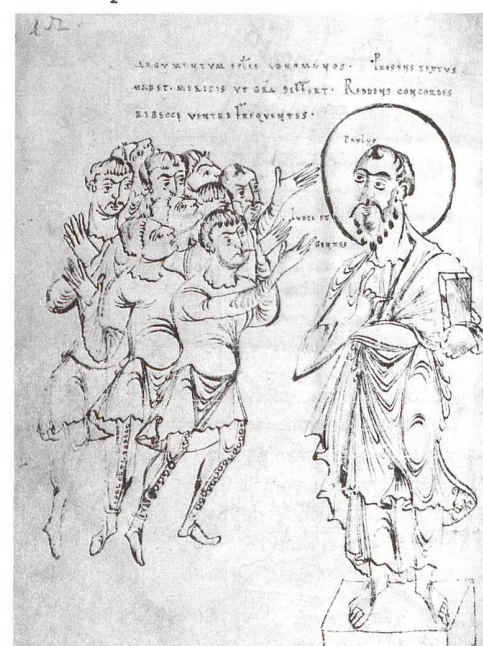 152
ARGVMENTVM EPŁE ADROMANOS · PRESENS TEXTVS
HABET · MERITIS VT GRA DIFFERT · REDDENS CONCORDES
REBECCE VENTRE FREQVENTES ·
PAVLVS
IVDEI ET
GENTES